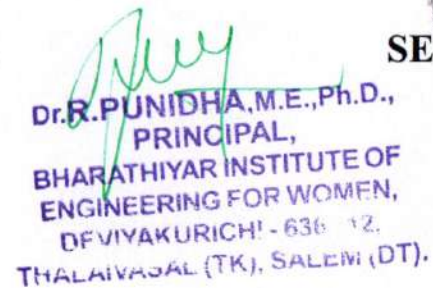 SE
Dr.R.PUNIDHA,M.E.,Ph.D.,
PRINCIPAL,
BHARATHIYAR INSTITUTE OF
ENGINEERING FOR WOMEN,
DEVIYAKURICHI - 636 12.
THALAIVASAL (TK), SALEM (DT).